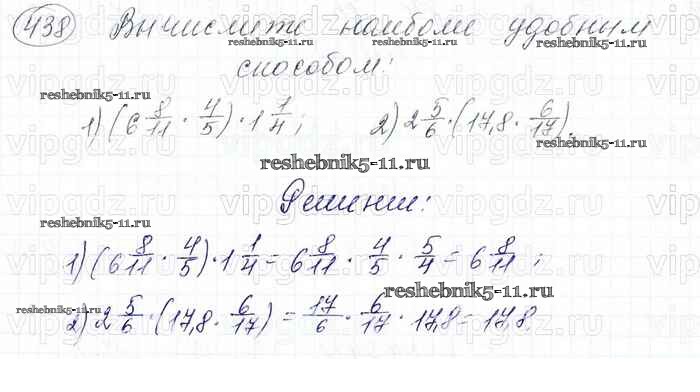 438 Вычислите наиболе удобным
способом:
reshebnik5-11.ru
reshebnik5-11.ru
reshebnik5-11.ru
1) (6 8/11 · 4/5) · 1 1/4; 2) 2 5/6 · (17,8 · 6/17).
reshebnik5-11.ru
reshebnik5-11.ru
Решение:
reshebnik5-11.ru
1) (6 8/11 · 4/5) · 1 1/4 = 6 8/11 · 4/5 · 5/4 = 6 8/11;
reshebnik5-11.ru
reshebnik5-11.ru
2) 2 5/6 · (17,8 · 6/17) = 17/6 · 6/17 · 17,8 = 17,8